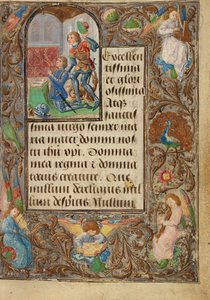 Excellen
tissima
et glori
osissima
atqz
sanctis
sima uirgo semper ma
ria mater domini nost
ri ihu xpi. Domina
mea regina et domina
totius creature. Que
nullum derelinquis nul
lum despicis. Nullum